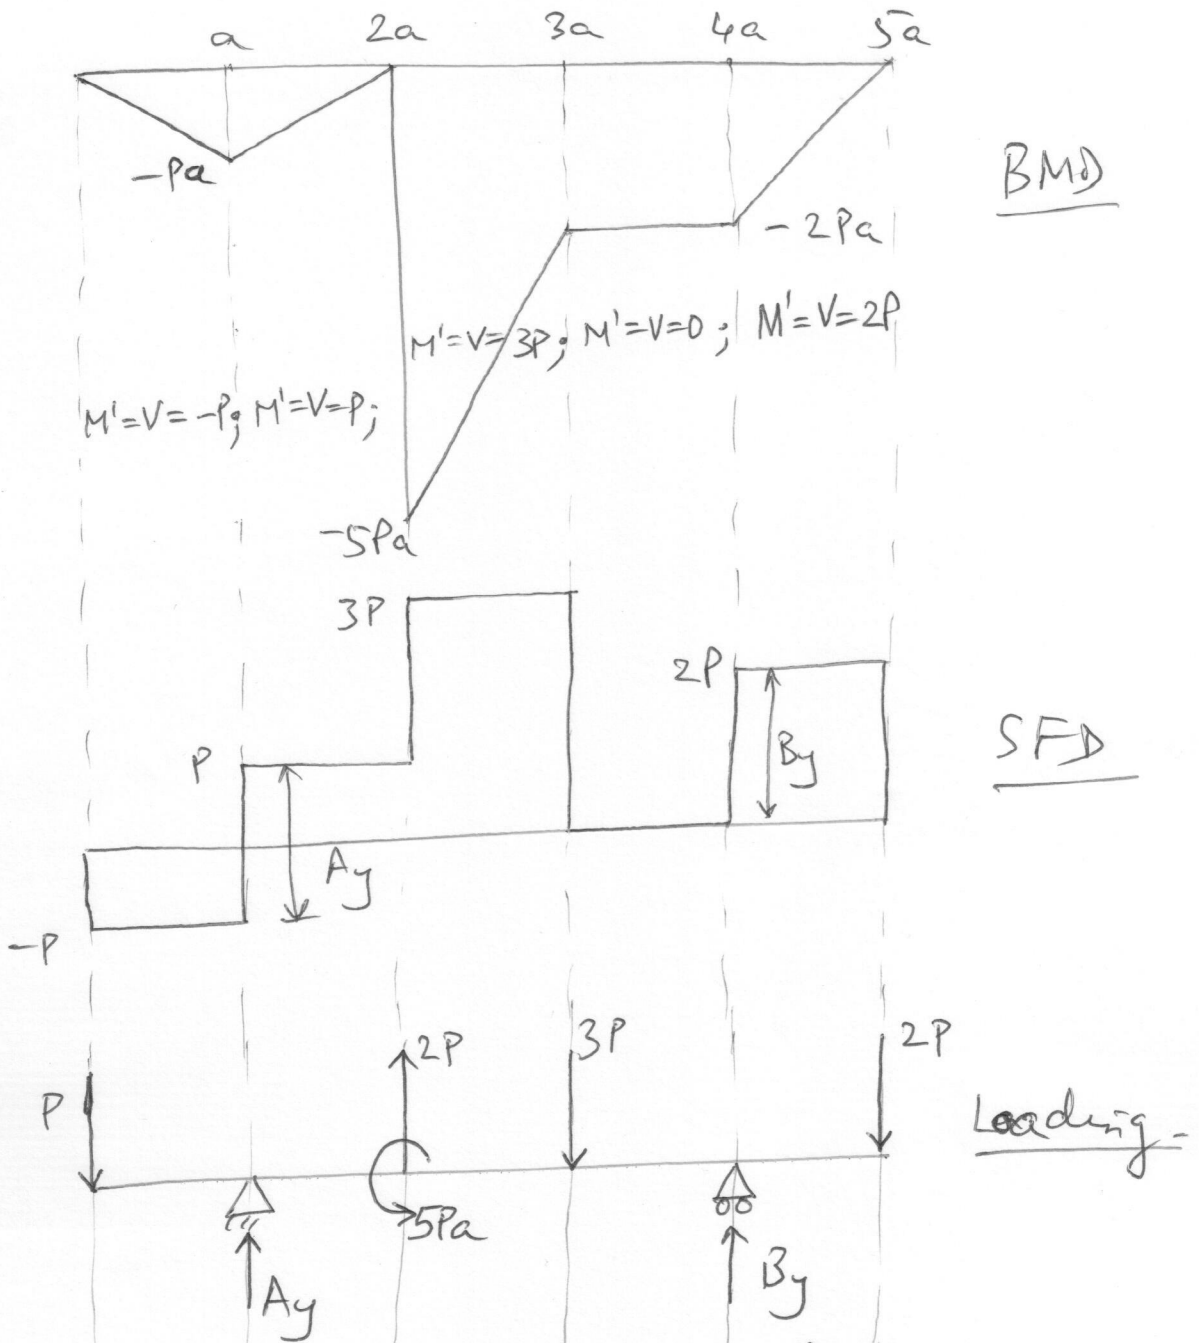 a 2a 3a 4a 5a
-Pa
BMD
-2Pa
M'=V=3P; M'=V=0; M'=V=2P
M'=V=-P; M'=V=P;
-5Pa
3P
2P
P
By
SFD
Ay
-P
2P
3P
2P
P
Loading
5Pa
Ay
By